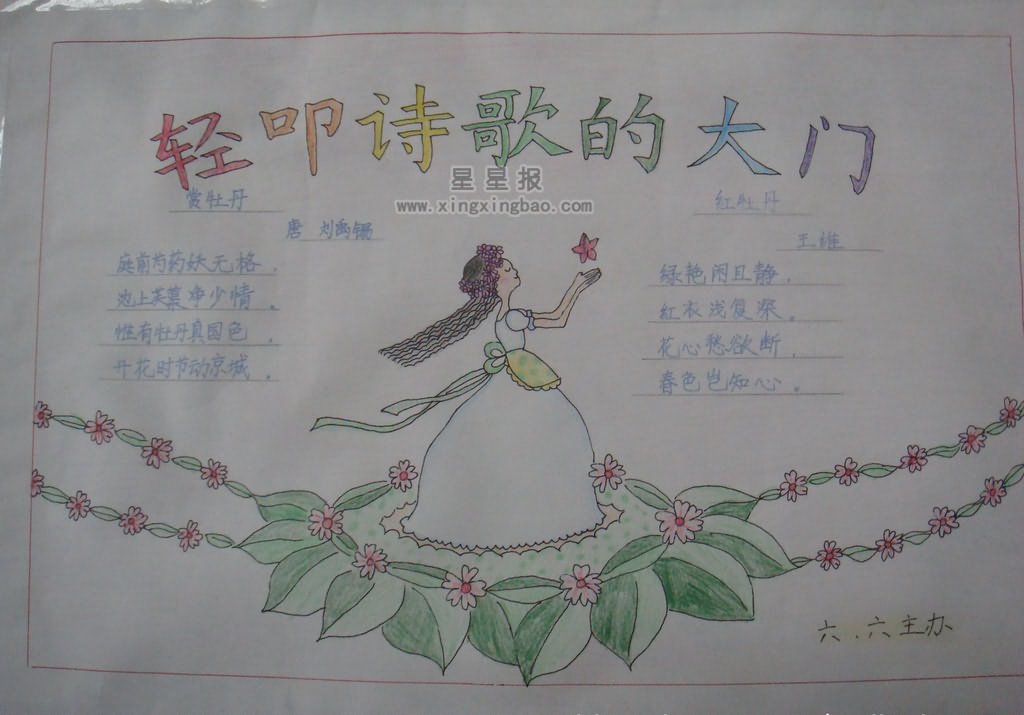 轻叩诗歌的大门
星星报
www.xingxingbao.com
赏牡丹
唐 刘禹锡
庭前芍药妖无格，
池上芙蕖净少情。
惟有牡丹真国色，
开花时节动京城。
红牡丹
王维
绿艳闲且静，
红衣浅复深。
花心愁欲断，
春色岂知心。
六．六主办